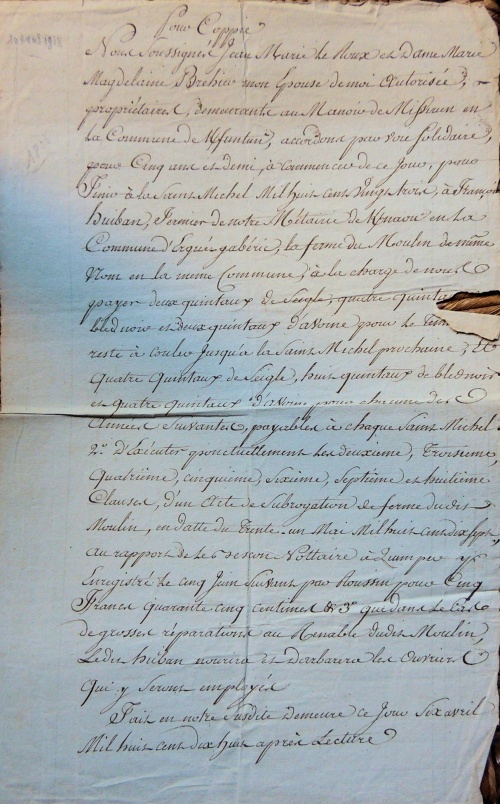 Pour Coppie
Nous Soussignés Jean Marie le Roux et Dame Marie
Magdelaine Brehier mon Epouse de moi Autorisée,
propriétaires, demeurants au Manoir de
la Commune de Kfuntun, acordons par voie Solidaire,
pour Cinq ans et demi, à commencer de ce Jour, pour
Finir à la Saint Michel Mil huit cent Vingt trois, à François
huiban, Fermier de notre Métairie de Knaou en La
Commune d'Ergué gabéric, la ferme du Moulin de même
Nom en la meme Commune, à la charge de nous
payer deux quintaux de Seigle, quatre quinta
bled noir et deux quintaux d'avoine pour le Tem
reste à couler Jusqu'à la Saint Michel prochaine, Et
quatre Quintaux de Seigle, huit quintaux de bled noir
et quatre quintaux d'avoine pour chacune des
Années Suivantes, payables à chaque Saint Michel
2.° D'Exécuter ponctuellement les deuxieme, Troisieme
Quatrième, cinquieme, Sixieme, Septieme et huitieme
Clauses, d'un Acte de Subrogation de ferme dudit
Moulin, en datte du Trente un Mai Mil huit cent dix Sept,
au rapport de Nottaire à Quimper y
Enregistré le cinq Juin Suivant par Roussin pour Cinq
Francs quarante cinq centimes & 3.° que dans le Cas
de grosses réparations au Renable dudit Moulin,
Ledit huiban nourira Et Darbarera les Ouvriers
Qui y Seront employés
Fait en notre Susdite Demeure ce Jour Six avril
Mil huit cent dix huit après Lecture